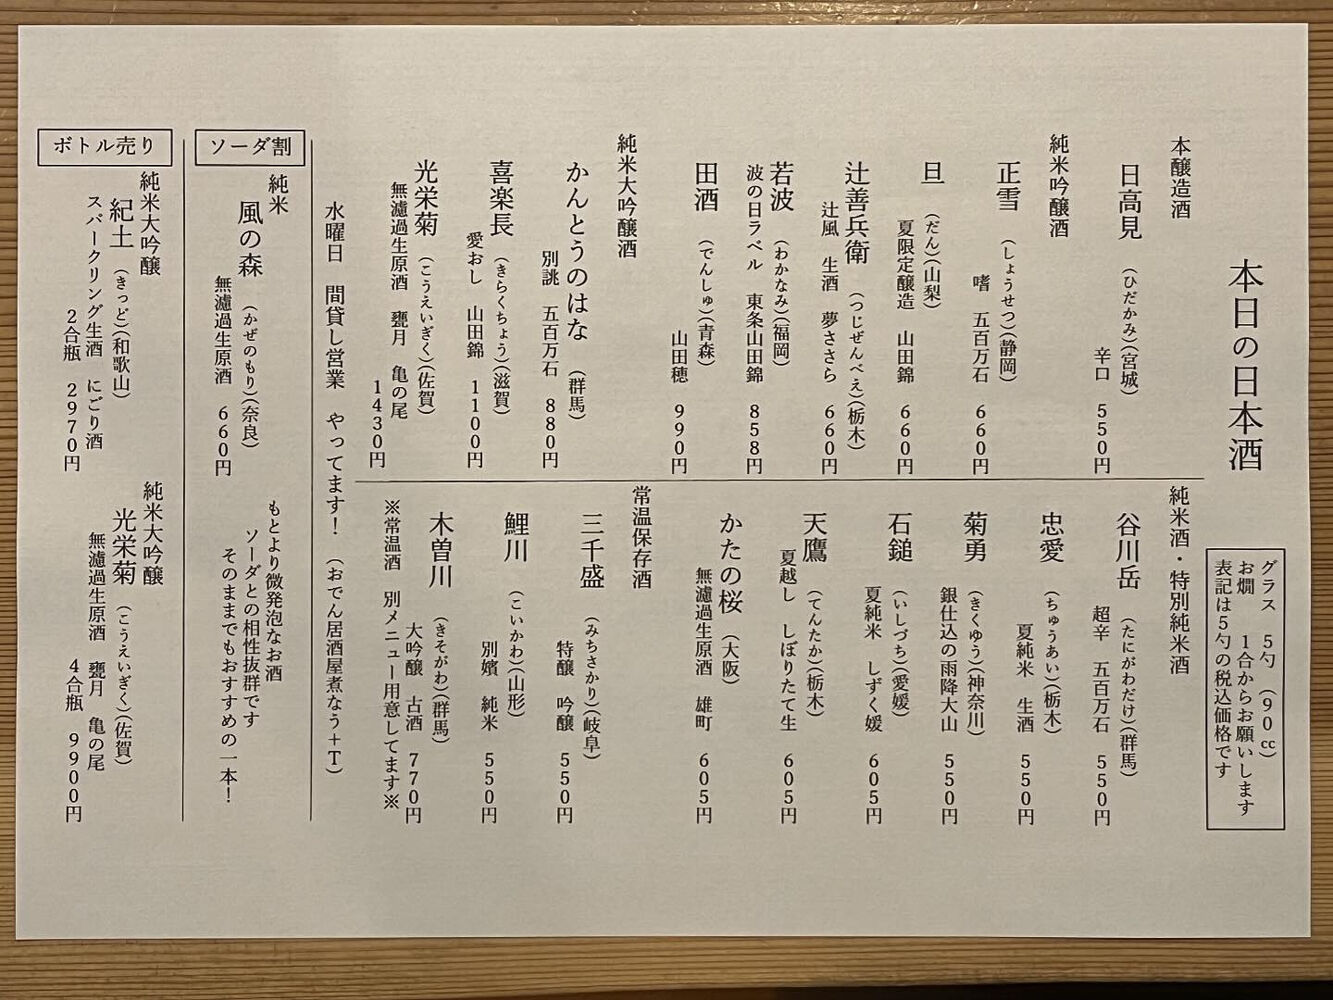 本日の日本酒
グラス　5勺　（90cc）
お燗　1合からお願いします
表記は5勺の税込価格です
本醸造酒
日高見　（ひだかみ）（宮城）
辛口　550円
純米吟醸酒
正雪　（しょうせつ）（静岡）
嗜　五百万石　660円
旦　（だん）（山梨）
夏限定醸造　山田錦　660円
辻善兵衛　（つじぜんべえ）（栃木）
辻風　生酒　夢ささら　660円
若波　（わかなみ）（福岡）
波の日ラベル　東条山田錦　858円
田酒　（でんしゅ）（青森）
山田穂　990円
純米大吟醸酒
かんとうのはな　（群馬）
別誂　五百万石　880円
喜楽長　（きらくちょう）（滋賀）
愛おし　山田錦　1100円
光栄菊　（こうえいぎく）（佐賀）
無濾過生原酒　甕月　亀の尾
1430円
純米酒・特別純米酒
谷川岳　（たにがわだけ）（群馬）
超辛　五百万石　550円
忠愛　（ちゅうあい）（栃木）
夏純米　生酒　550円
菊勇　（きくゆう）（神奈川）
銀仕込の雨降大山　550円
石鎚　（いしづち）（愛媛）
夏純米　しずく媛　605円
天鷹　（てんたか）（栃木）
夏越し　しぼりたて生　605円
かたの桜　（大阪）
無濾過生原酒　雄町　605円
常温保存酒
三千盛　（みちさかり）（岐阜）
特醸　吟醸　550円
鯉川　（こいかわ）（山形）
別嬪　純米　550円
木曽川　（きそがわ）（群馬）
大吟醸　古酒　770円
※常温酒　別メニュー用意してます※
水曜日　間貸し営業　やってます！　（おでん居酒屋煮なう＋T）
ソーダ割
純米
風の森　（かぜのもり）（奈良）
無濾過生原酒　660円
もとより微発泡なお酒
ソーダとの相性抜群です
そのままでもおすすめの一本！
ボトル売り
純米大吟醸
紀土　（きっど）（和歌山）
スパークリング生酒　にごり酒
2合瓶　2970円
純米大吟醸
光栄菊　（こうえいぎく）（佐賀）
無濾過生原酒　甕月　亀の尾
4合瓶　9900円